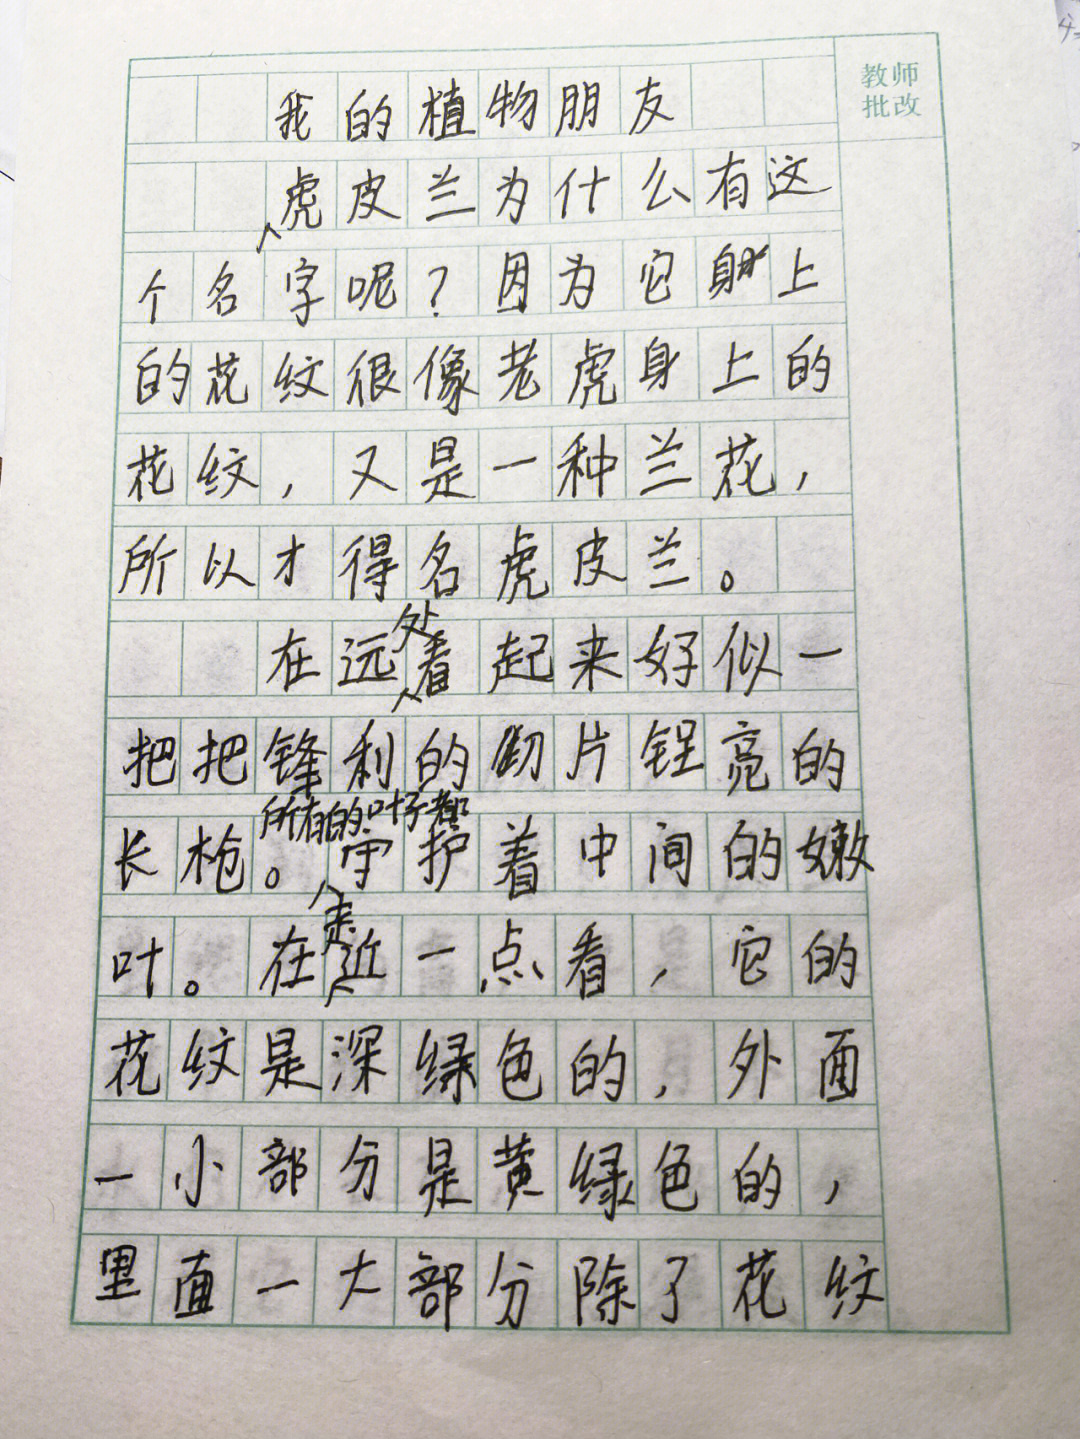 教师
批改
我的植物朋友
虎皮兰为什么有这
个名字呢？因为它身上
的花纹很像老虎身上的
花纹，又是一种兰花，
所以才得名虎皮兰。
在远处看起来好似一
把把锋利的切片锃亮的
长枪。所有的叶子都守护着中间的嫩
叶。在走近一点看，它的
花纹是深绿色的，外面
一小部分是黄绿色的，
里面一大部分除了花纹